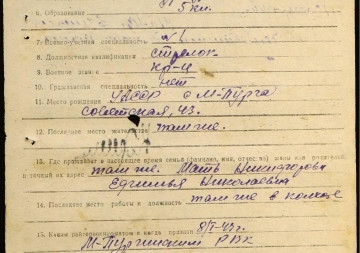 6. Образование 5 кл.
7. Военно-учетная специальность №1
8. Должностная квалификация стрелок
9. Военное звание кр-ц
10. Гражданская специальность нет
11. Место рождения УАССР с М-Пурга
советская, 43.
12. Последнее место жительства там же.
13. Где проживает в настоящее время семья (фамилия, имя, отчество) жены или родителей
и точный их адрес там же. Мать
Николаевна
14. Последнее место работы и должность там же в колхозе
15. Каким райвоенкоматом и когда призван 8/I-43г.
М-Пургинским РВК